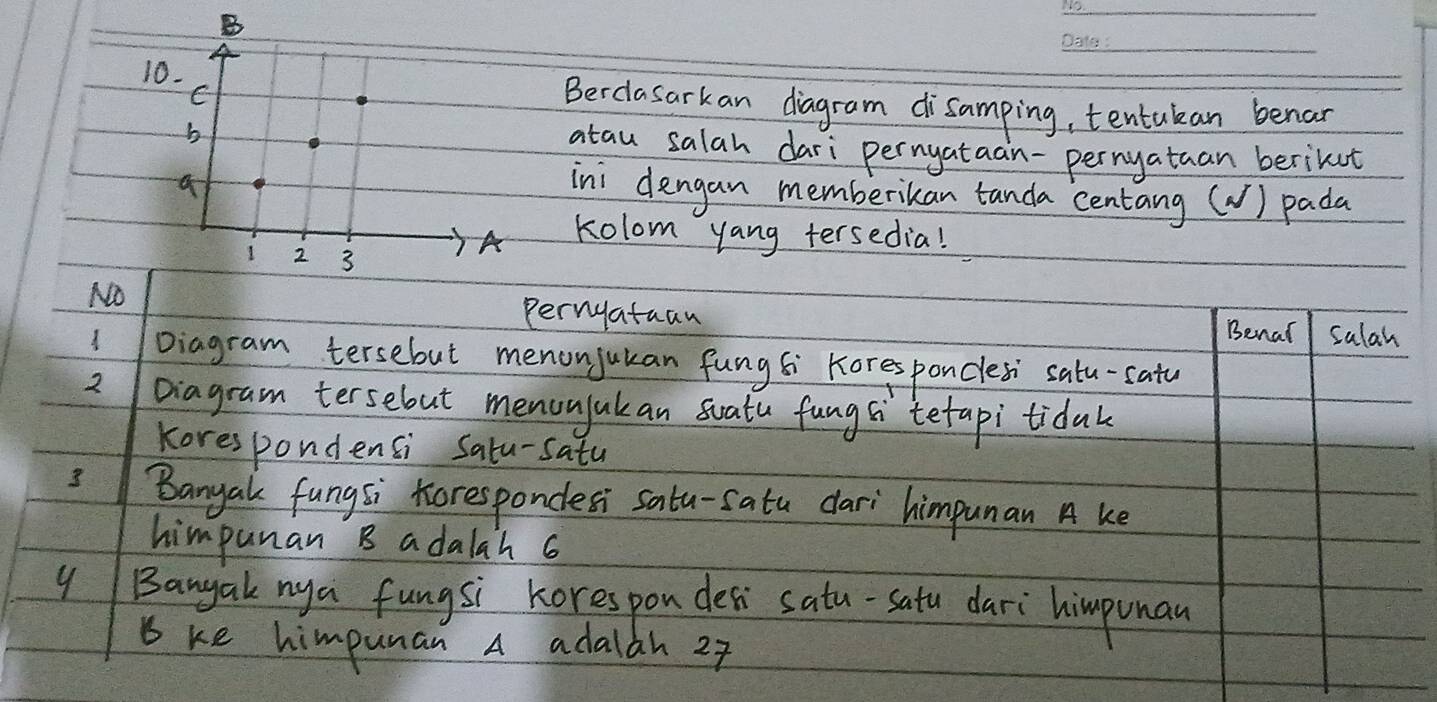 No.
Date :
B
10- c
b
a
1 2 3 A
Berdasarkan diagram disamping, tentukan benar
atau salah dari pernyataan- pernyataan berikut
ini dengan memberikan tanda centang (√) pada
Kolom yang tersedia!
No Pernyataan Benar Salah
1 Diagram tersebut menunjukan fungsi Korespondesi satu-satu
2 Diagram tersebut menunjukan suatu fungsi tetapi tidak
Korespondensi Satu-Satu
3 Banyak fungsi Korespondesi satu-satu dari himpunan A ke
himpunan B adalah 6
4 Banyak nya fungsi Korespondesi satu-satu dari himpunan
B ke himpunan A adalah 27